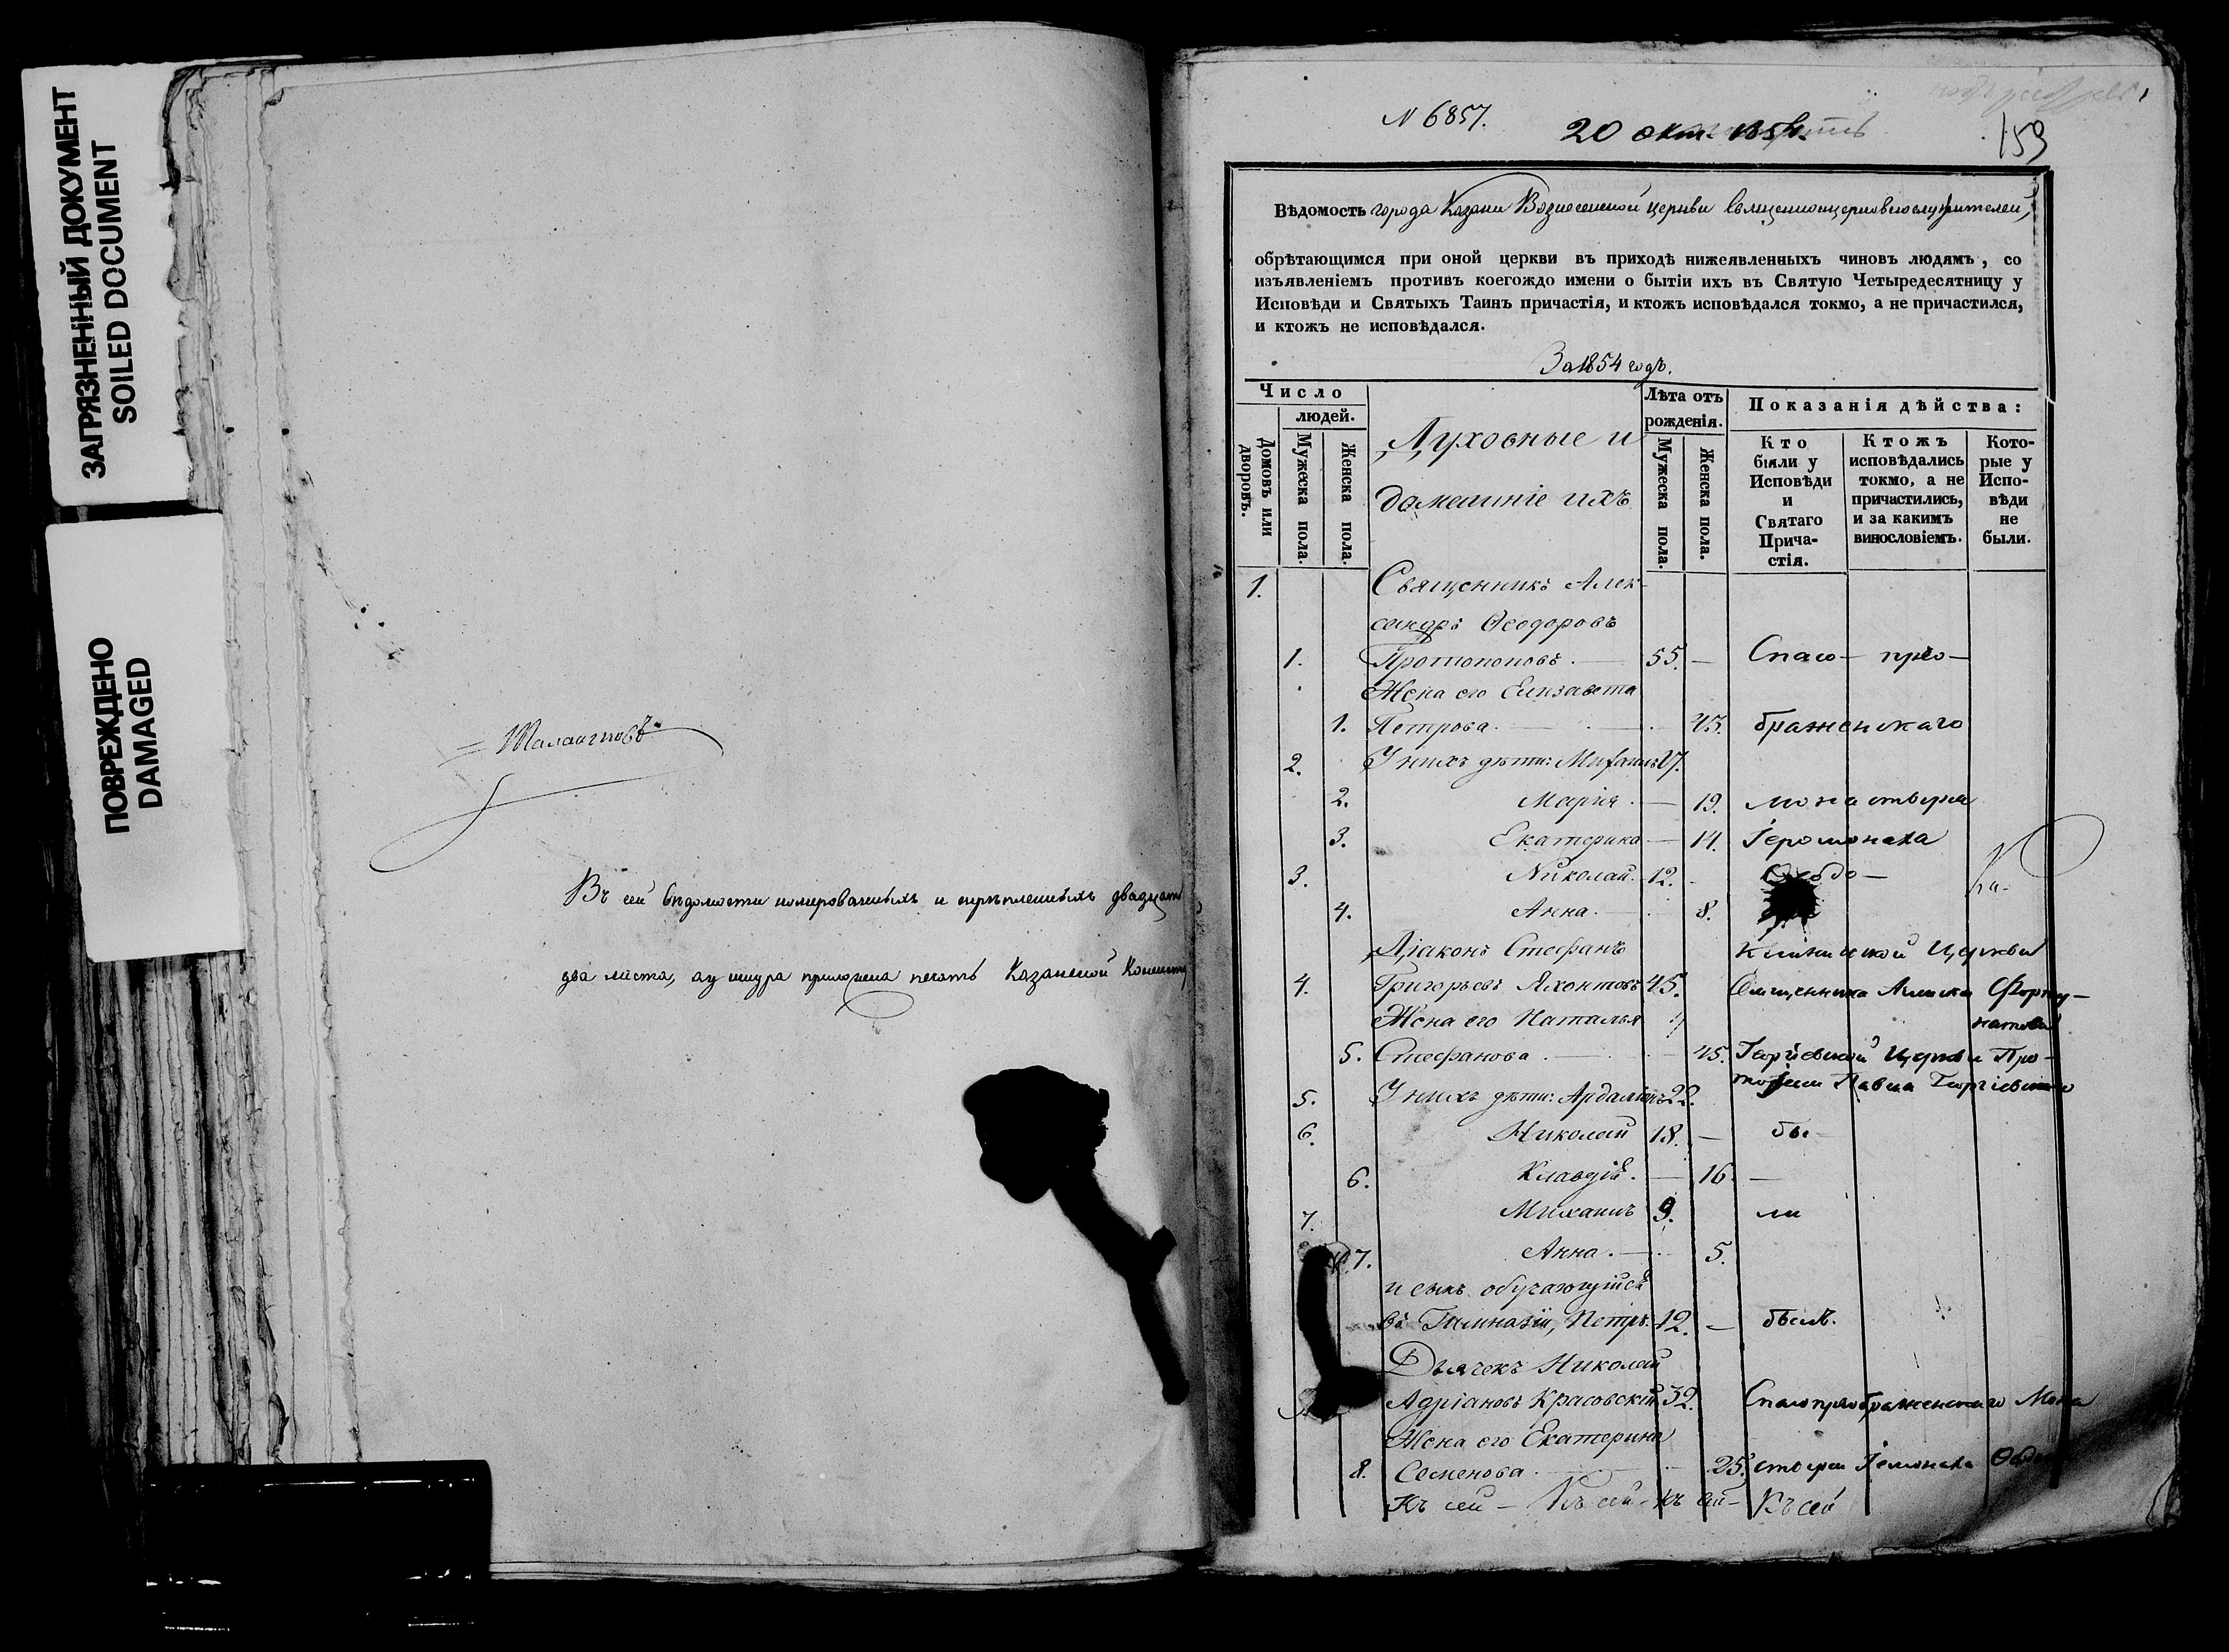 ЗАГРЯЗНЕННЫЙ ДОКУМЕНТ
SOILED DOCUMENT
ПОВРЕЖДЕНО
DAMAGED
Въ сей вѣдомости номерованныхъ и скрѣпленныхъ двадцать
два листа, а у шнура приложена печать Казанской
N 6857.
20 окт. 1854.
153
Вѣдомость города Казани Вознесенской церкви священноцерковнослужителей,
обрѣтающимся при оной церкви въ приходѣ нижеявленныхъ чиновъ людямъ, со
изъявленіемъ противъ коегождо имени о бытіи ихъ въ Святую Четыредесятницу у
Исповѣди и Святыхъ Таинъ причастія, и ктожъ исповѣдался токмо, а не причастился,
и ктожъ не исповѣдался.
За 1854 годъ.
Число
людей.
Домовъ или дворовъ.
Мужеска пола.
Женска пола.
Духовные и
домашніе ихъ
Лѣта отъ
рожденія.
Мужеска пола.
Женска пола.
Показанія дѣйства:
Кто
были у
Исповѣди
и
Святаго
Прича-
стія.
Ктожъ
исповѣдались
токмо, а не
причастились,
и за какимъ
винословіемъ.
Кото-
рые у
Испо-
вѣди
не
были.
1. Священникъ Алек-
сандръ Ѳеодоровъ
1. Протопоповъ. 55. — Спасо — прео —
Жена его Елизавета
1. Петрова. 43. браженскаго
2. У нихъ дѣти: 17.
2. Марія. — 19. монастыря
3. Екатерина — 14. Іеромонаха
3. Николай. 12.
4. Анна. — 8.
Діаконъ Стефанъ церкви
4. Григорьевъ Яхонтовъ 45. Священника
Жена его Наталья
5. Стефанова. — 45. Георгіевской церкви Про-
5. У нихъ дѣти: Ардаліонъ 22. Павла
6. Николай 18. — бы —
6. Клавдія. — 16. —
7. Михаилъ 9. ли
7. Анна. — 5.
и сынъ обучающійся
въ Гимназіи, Петръ. 12. — былъ.
Дьячекъ Николай
Адріановъ Красовскій 32. Спасопреображенскаго Мона
Жена его Екатерина
8. Семенова. 25. стыря
Къ сей — Къ сей — Къ сей — Къ сей